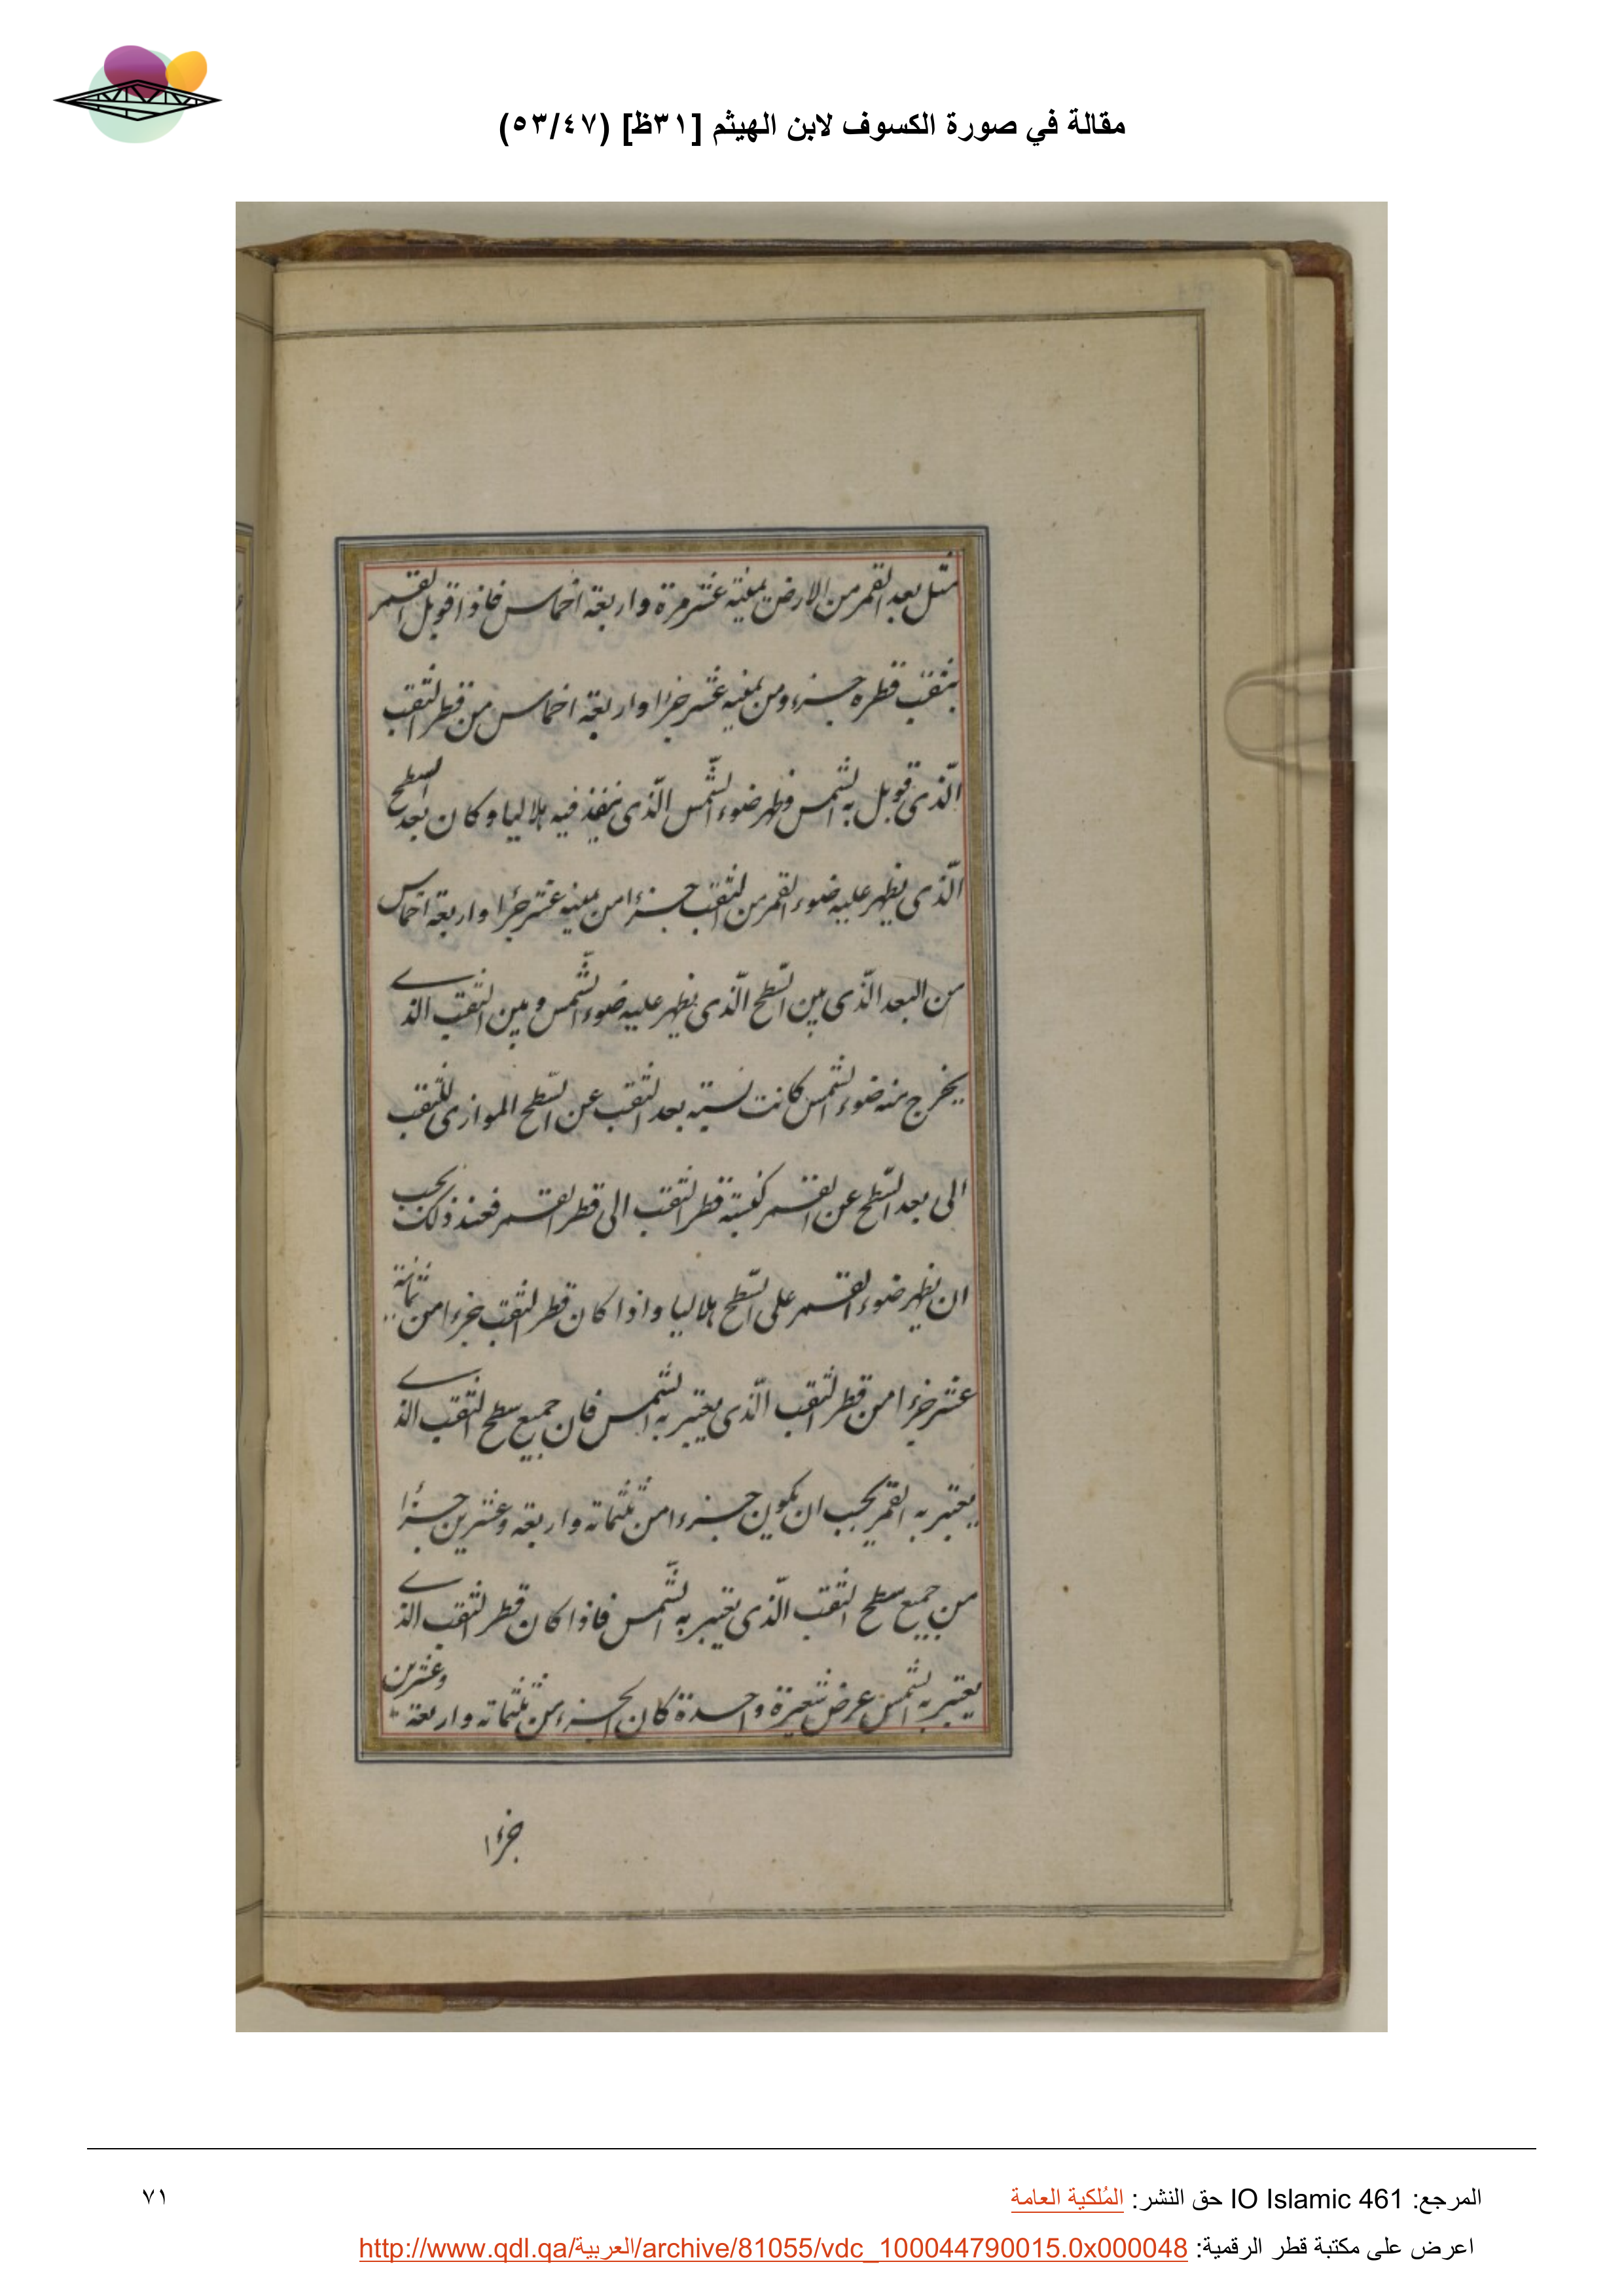 مقالة في صورة الكسوف لابن الهيثم [٣١ظ] (٥٣/٤٧)
مثل بعد القمر من الارض ثمنية عشر مرة واربعة اخماس فاذا قوبل القمر
بثقب قطره جزء من ثمنيه عشر جزءا واربعة اخماس من قطر الثقب
الّذى قوبل به الشمس فظهر ضوء الشّمس الّذى ينفذ فيه هلاليا وكان بعد السطح
الّذى يظهر عليه ضوء القمر من الثقب جزءا من ثمنيه عشر جزءا واربعة اخماس
من البعد الّذى بين السّطح الّذى يظهر عليه ضوء الشّمس وبين الثقب الذى
يخرج منه ضوء الشمس كانت نسبة بعد الثقب عن السّطح الموازى للثقب
الى بعد السّطح عن القمر كنسبة قطر الثقب الى قطر القمر فعند ذلك يجب
ان يظهر ضوء القمر على السّطح هلاليا واذا كان قطر الثقب جزءا من ثمانية
عشر جزءا من قطر الثقب الّذى يعتبر به الشمس فان جميع سطح الثقب الذى
يعتبر به القمر يجب ان يكون جزءا من ثلثماته واربعة وعشرين جزءا
من جميع سطح الثقب الّذى يعتبر به الشّمس فاذا كان قطر الثقب الذى
يعتبر به الشمس عرض شعيرة واحدة كان الجزء من ثلثماته واربعة وعشرين
جزءا
المرجع: IO Islamic 461 حق النشر: المُلكية العامة
٧١
اعرض على مكتبة قطر الرقمية: http://www.qdl.qa/العربية/archive/81055/vdc_100044790015.0x000048